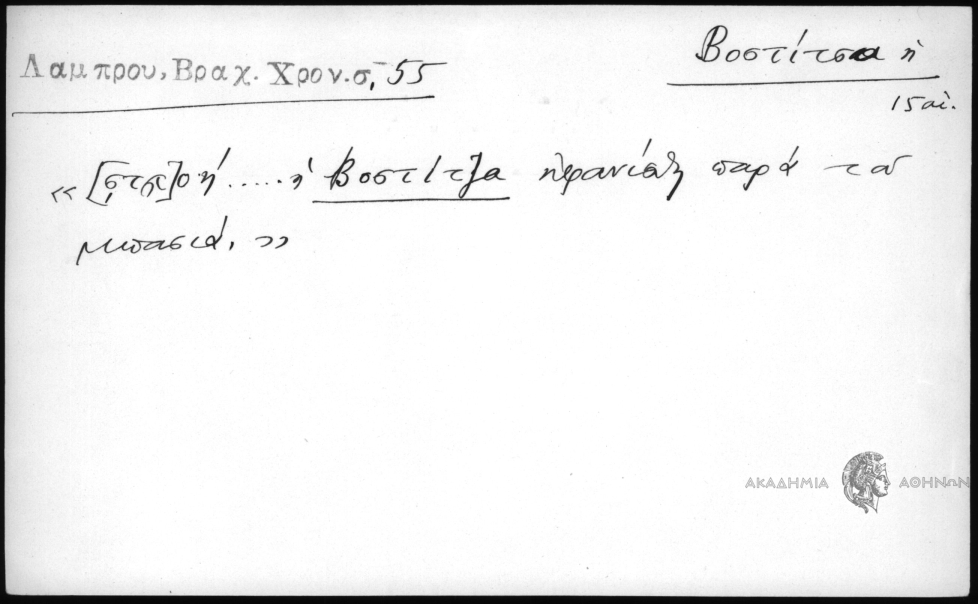 Λαμπρου, Βραχ. Χρον. σ, 55
Βοστίτσα ἡ
15 αἰ.
« [ςτϡ]οή ..... ἡ Βοστίτζα ἠφανίσθη παρὰ τοῦ
μπασιᾶ. »
ΑΚΑΔΗΜΙΑ ΑΘΗΝΩΝ